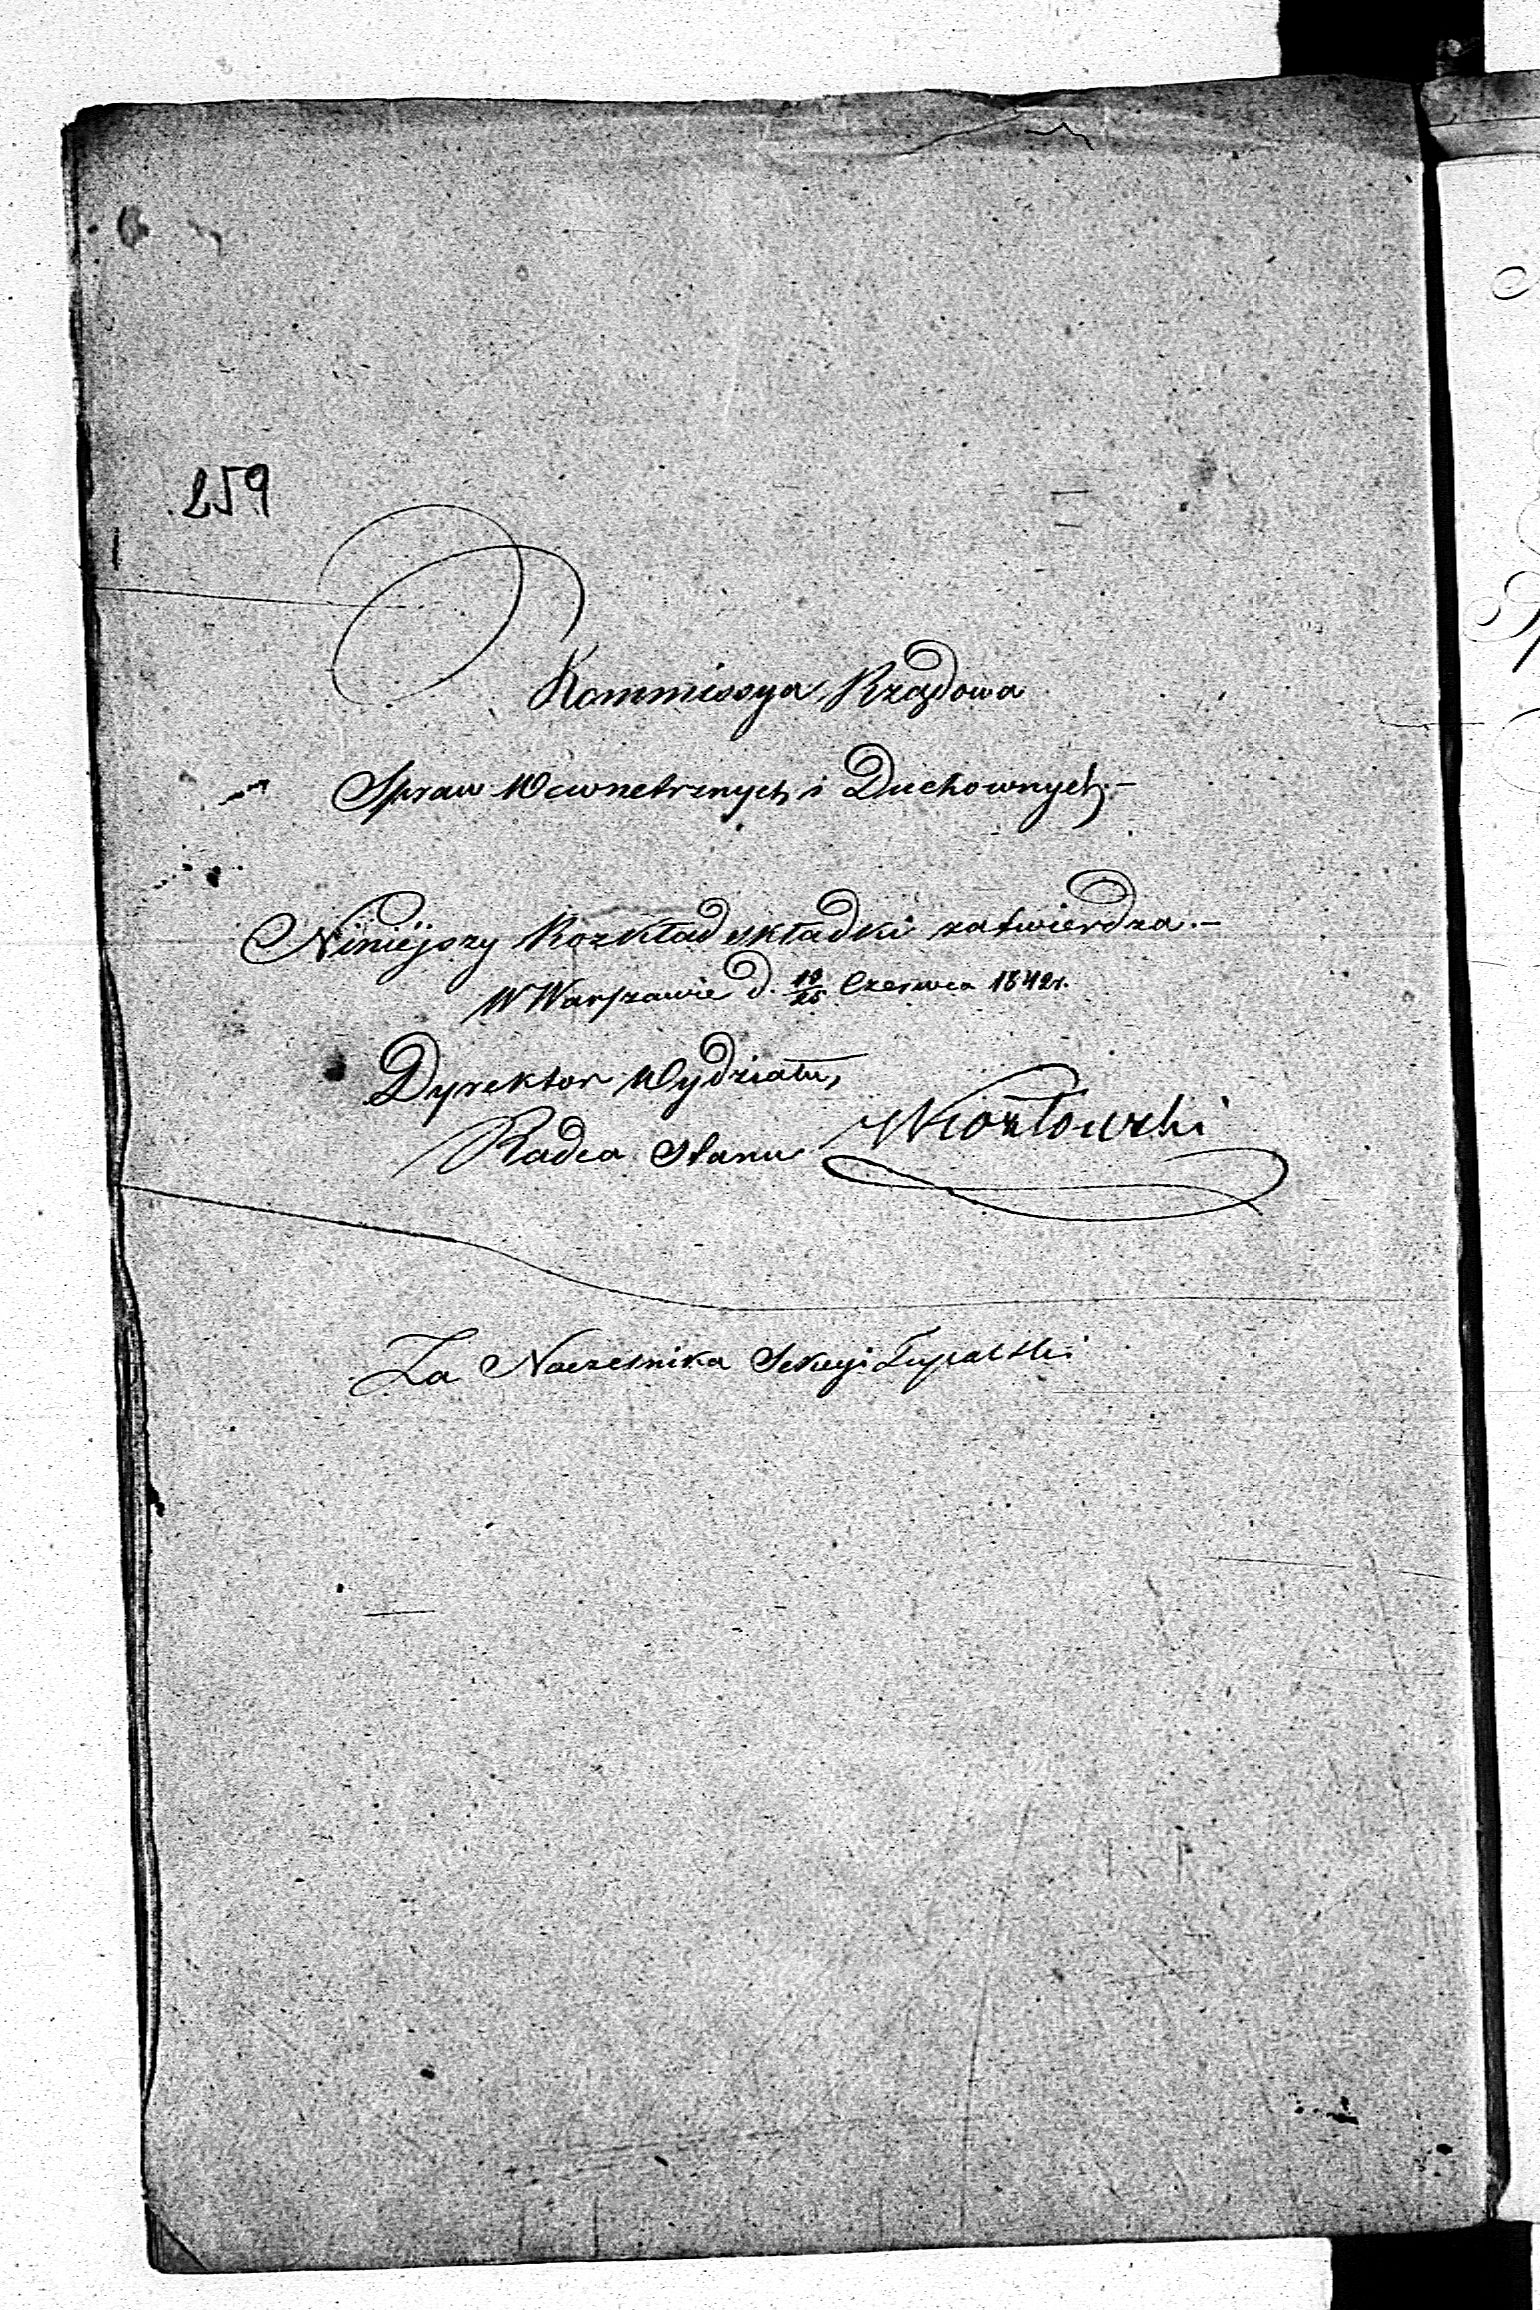 259
Kommissya Rządowa
Spraw Wewnetrznych i Duchownych.–
Niniéjszy Rozkład składki zatwierdza.–
W Warszawie d. 13/25 Czerwca 1842 r.
Dyrektor Wydziału,
Radca Stanu
Za Naczelnika Sekcyi